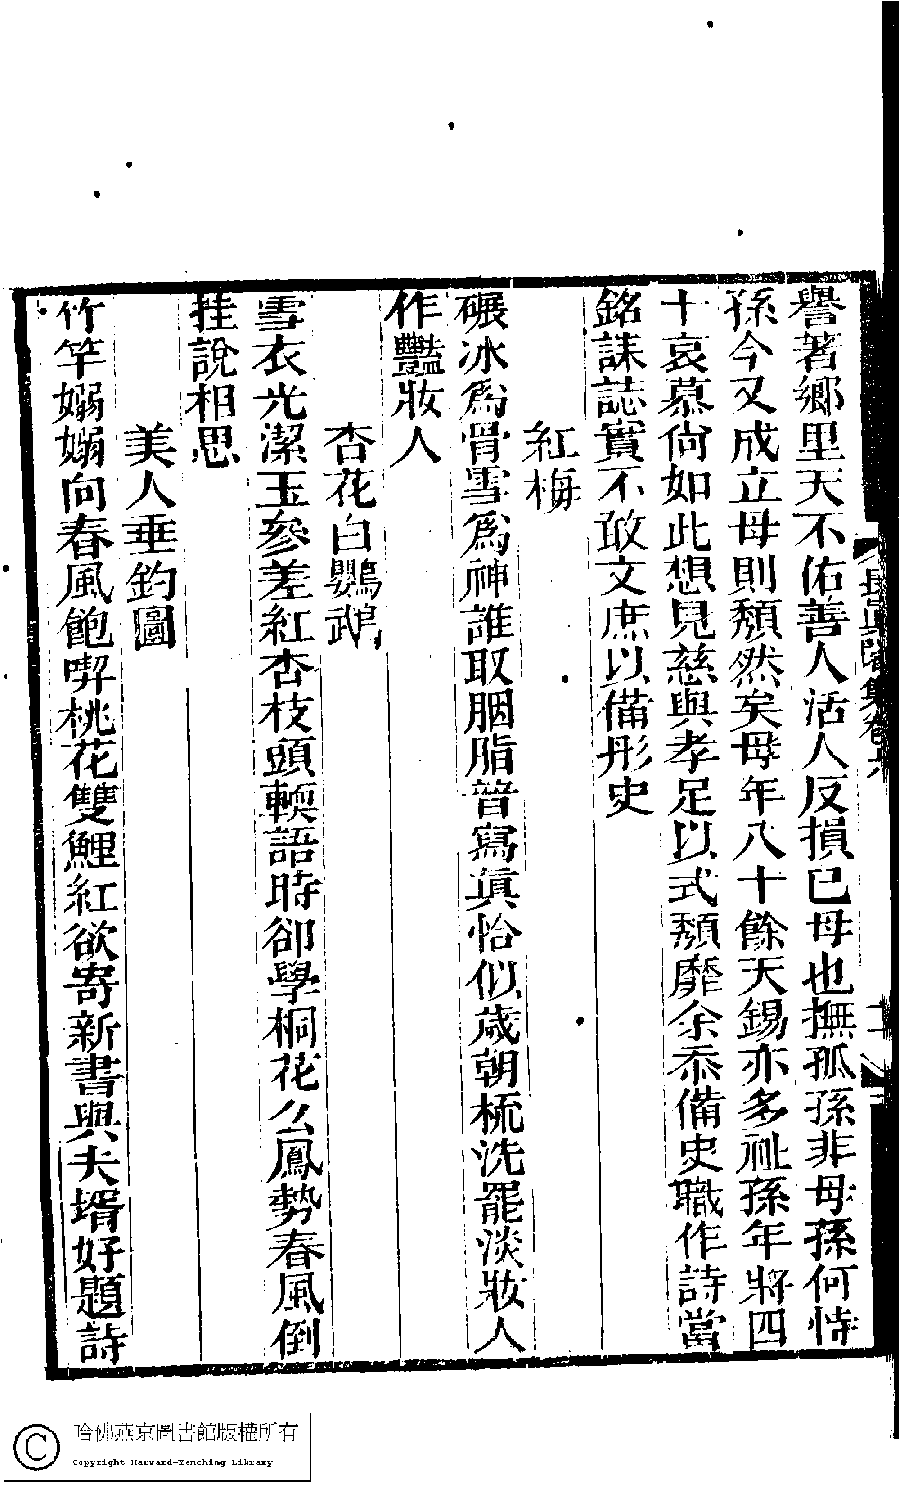 譽著鄉里天不佑善人活人反損已母也撫孤孫非母孫何恃
孫今又成立母則頽然矣母年八十餘天錫亦多祉孫年將四
十哀慕尙如此想見慈與孝足以式頽靡余忝備史職作詩當
銘誄誌實不敢文庶以備彤史
紅梅
碾冰爲骨雪爲神誰取胭脂普寫眞恰似歲朝梳洗罷淡妝人
作豔妝人
杏花白鸚鵡
雪衣光潔玉參差紅杏枝頭輭語時卻學桐花么鳳勢春風倒
挂說相思
美人垂釣圖
竹竿嫋嫋向春風飽喫桃花雙鯉紅欲寄新書與夫壻好題詩
長眞閣集卷六
二
哈佛燕京圖書館版權所有
Copyright Harvard-Yenching Library